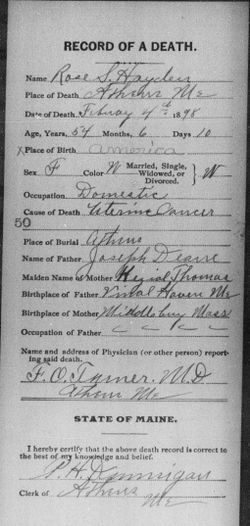 RECORD OF A DEATH.
Name Rose S. Hayden
Place of Death Athens Me
Date of Death February 4th 1898
Age, Years, 54 Months, 6 Days 10
x Place of Birth America
Sex F Color W Married, Single, Widowed, or Divorced. } W
Occupation Domestic
Cause of Death Uterine Cancer
50
Place of Burial Athens
Name of Father Joseph
Maiden Name of Mother Thomas
Birthplace of Father Vinal Haven Me
Birthplace of Mother Middlebury Mass
Occupation of Father
Name and address of Physician (or other person) report-
ing said death.
F. O. M.D.
Athens Me
STATE OF MAINE.
I hereby certify that the above death record is correct to
the best of my knowledge and belief.
H.
Clerk of Athens
Me